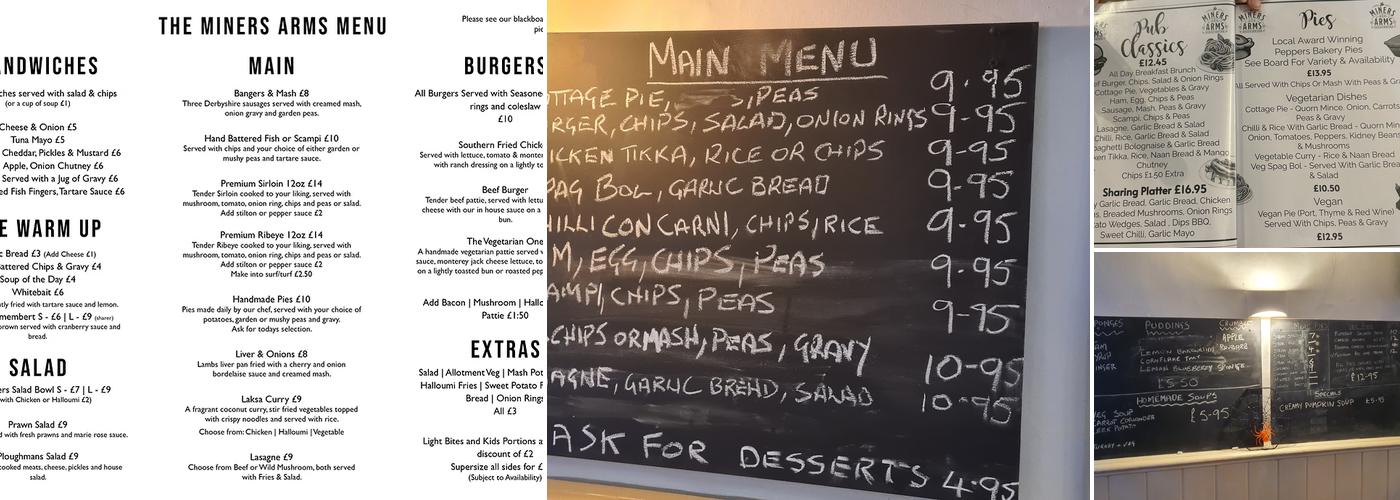 THE MINERS ARMS MENU
NDWICHES
ches served with salad & chips
(or a cup of soup £1)
Cheese & Onion £5
Tuna Mayo £5
Cheddar, Pickles & Mustard £6
Apple, Onion Chutney £6
Served with a Jug of Gravy £6
ed Fish Fingers, Tartare Sauce £6
E WARM UP
c Bread £3 (Add Cheese £1)
attered Chips & Gravy £4
Soup of the Day £4
Whitebait £6
tly fried with tartare sauce and lemon.
membert S - £6 | L - £9 (sharer)
brown served with cranberry sauce and
bread.
SALAD
ers Salad Bowl S - £7 | L - £9
with Chicken or Halloumi £2)
Prawn Salad £9
d with fresh prawns and marie rose sauce.
Ploughmans Salad £9
cooked meats, cheese, pickles and house
salad.
MAIN
Bangers & Mash £8
Three Derbyshire sausages served with creamed mash,
onion gravy and garden peas.
Hand Battered Fish or Scampi £10
Served with chips and your choice of either garden or
mushy peas and tartare sauce.
Premium Sirloin 12oz £14
Tender Sirloin cooked to your liking, served with
mushroom, tomato, onion ring, chips and peas or salad.
Add stilton or pepper sauce £2
Premium Ribeye 12oz £14
Tender Ribeye cooked to your liking, served with
mushroom, tomato, onion ring, chips and peas or salad.
Add stilton or pepper sauce £2
Make into surf/turf £2.50
Handmade Pies £10
Pies made daily by our chef, served with your choice of
potatoes, garden or mushy peas and gravy.
Ask for todays selection.
Liver & Onions £8
Lambs liver pan fried with a cherry and onion
bordelaise sauce and creamed mash.
Laksa Curry £9
A fragrant coconut curry, stir fried vegetables topped
with crispy noodles and served with rice.
Choose from: Chicken | Halloumi | Vegetable
Lasagne £9
Choose from Beef or Wild Mushroom, both served
with Fries & Salad.
Please see our blackboa
pie
BURGERS
All Burgers Served with Seasone
rings and coleslaw
£10
Southern Fried Chick
Served with lettuce, tomato & monter
with ranch dressing on a lightly to
Beef Burger
Tender beef pattie, served with lettu
cheese with our in house sauce on a
bun.
The Vegetarian One
A handmade vegetarian pattie served w
sauce, monterey jack cheese lettuce, to
on a lightly toasted bun or roasted pep
Add Bacon | Mushroom | Hallo
Pattie £1:50
EXTRAS
Salad | Allotment Veg | Mash Pot
Halloumi Fries | Sweet Potato F
Bread | Onion Rings
All £3
Light Bites and Kids Portions a
discount of £2
Supersize all sides for £
(Subject to Availability)
MAIN MENU
TTAGE PIE, PEAS 9.95
RGER, CHIPS, SALAD, ONION RINGS 9-95
ICKEN TIKKA, RICE OR CHIPS 9-95
PAG BOL, GARLIC BREAD 9-95
HILLI CON CARNI, CHIPS/RICE 9-95
M, EGG, CHIPS, PEAS 9-95
AMPI, CHIPS, PEAS 9-95
CHIPS OR MASH, PEAS, GRAVY 10-95
AGNE, GARLIC BREAD, SALAD 10-95
ASK FOR DESSERTS 4.95
Pub
Classics
£12.45
All Day Breakfast Brunch
f Burger, Chips, Salad & Onion Rings
Cottage Pie, Vegetables & Gravy
Ham, Egg, Chips & Peas
Sausage, Mash, Peas & Gravy
Scampi, Chips & Peas
Lasagne, Garlic Bread & Salad
Chilli, Rice, Garlic Bread & Salad
paghetti Bolognaise & Garlic Bread
ken Tikka, Rice, Naan Bread & Mango
Chutney
Chips £1.50 Extra
Sharing Platter £16.95
y Garlic Bread, Garlic Bread, Chicken
s, Breaded Mushrooms, Onion Rings
ato Wedges, Salad , Dips BBQ,
Sweet Chilli, Garlic Mayo
MINERS
ARMS
Pies
MINERS
ARMS
Local Award Winning
Peppers Bakery Pies
See Board For Variety & Availability
£13.95
All Served With Chips Or Mash With Peas & Gra
Vegetarian Dishes
Cottage Pie - Quorn Mince, Onion, Carrots
Peas & Gravy
Chilli & Rice With Garlic Bread - Quorn Min
Onion, Tomatoes, Peppers, Kidney Beans
& Mushrooms
Vegetable Curry - Rice & Naan Bread
Veg Spag Bol - Served With Garlic Bread
& Salad
£10.50
Vegan
Vegan Pie (Port, Thyme & Red Wine)
Served With Chips, Peas & Gravy
£12.95
PONGES
PUDDINGS
CRUMBLE
APPLE
RHUBARB
LEMON BLUEBERRY SPONGE
£5-50
HOMEMADE SOUPS
VEG SOUP
£5-95
£12-95
SPECIALS
CREAMY PUMPKIN SOUP £5-95